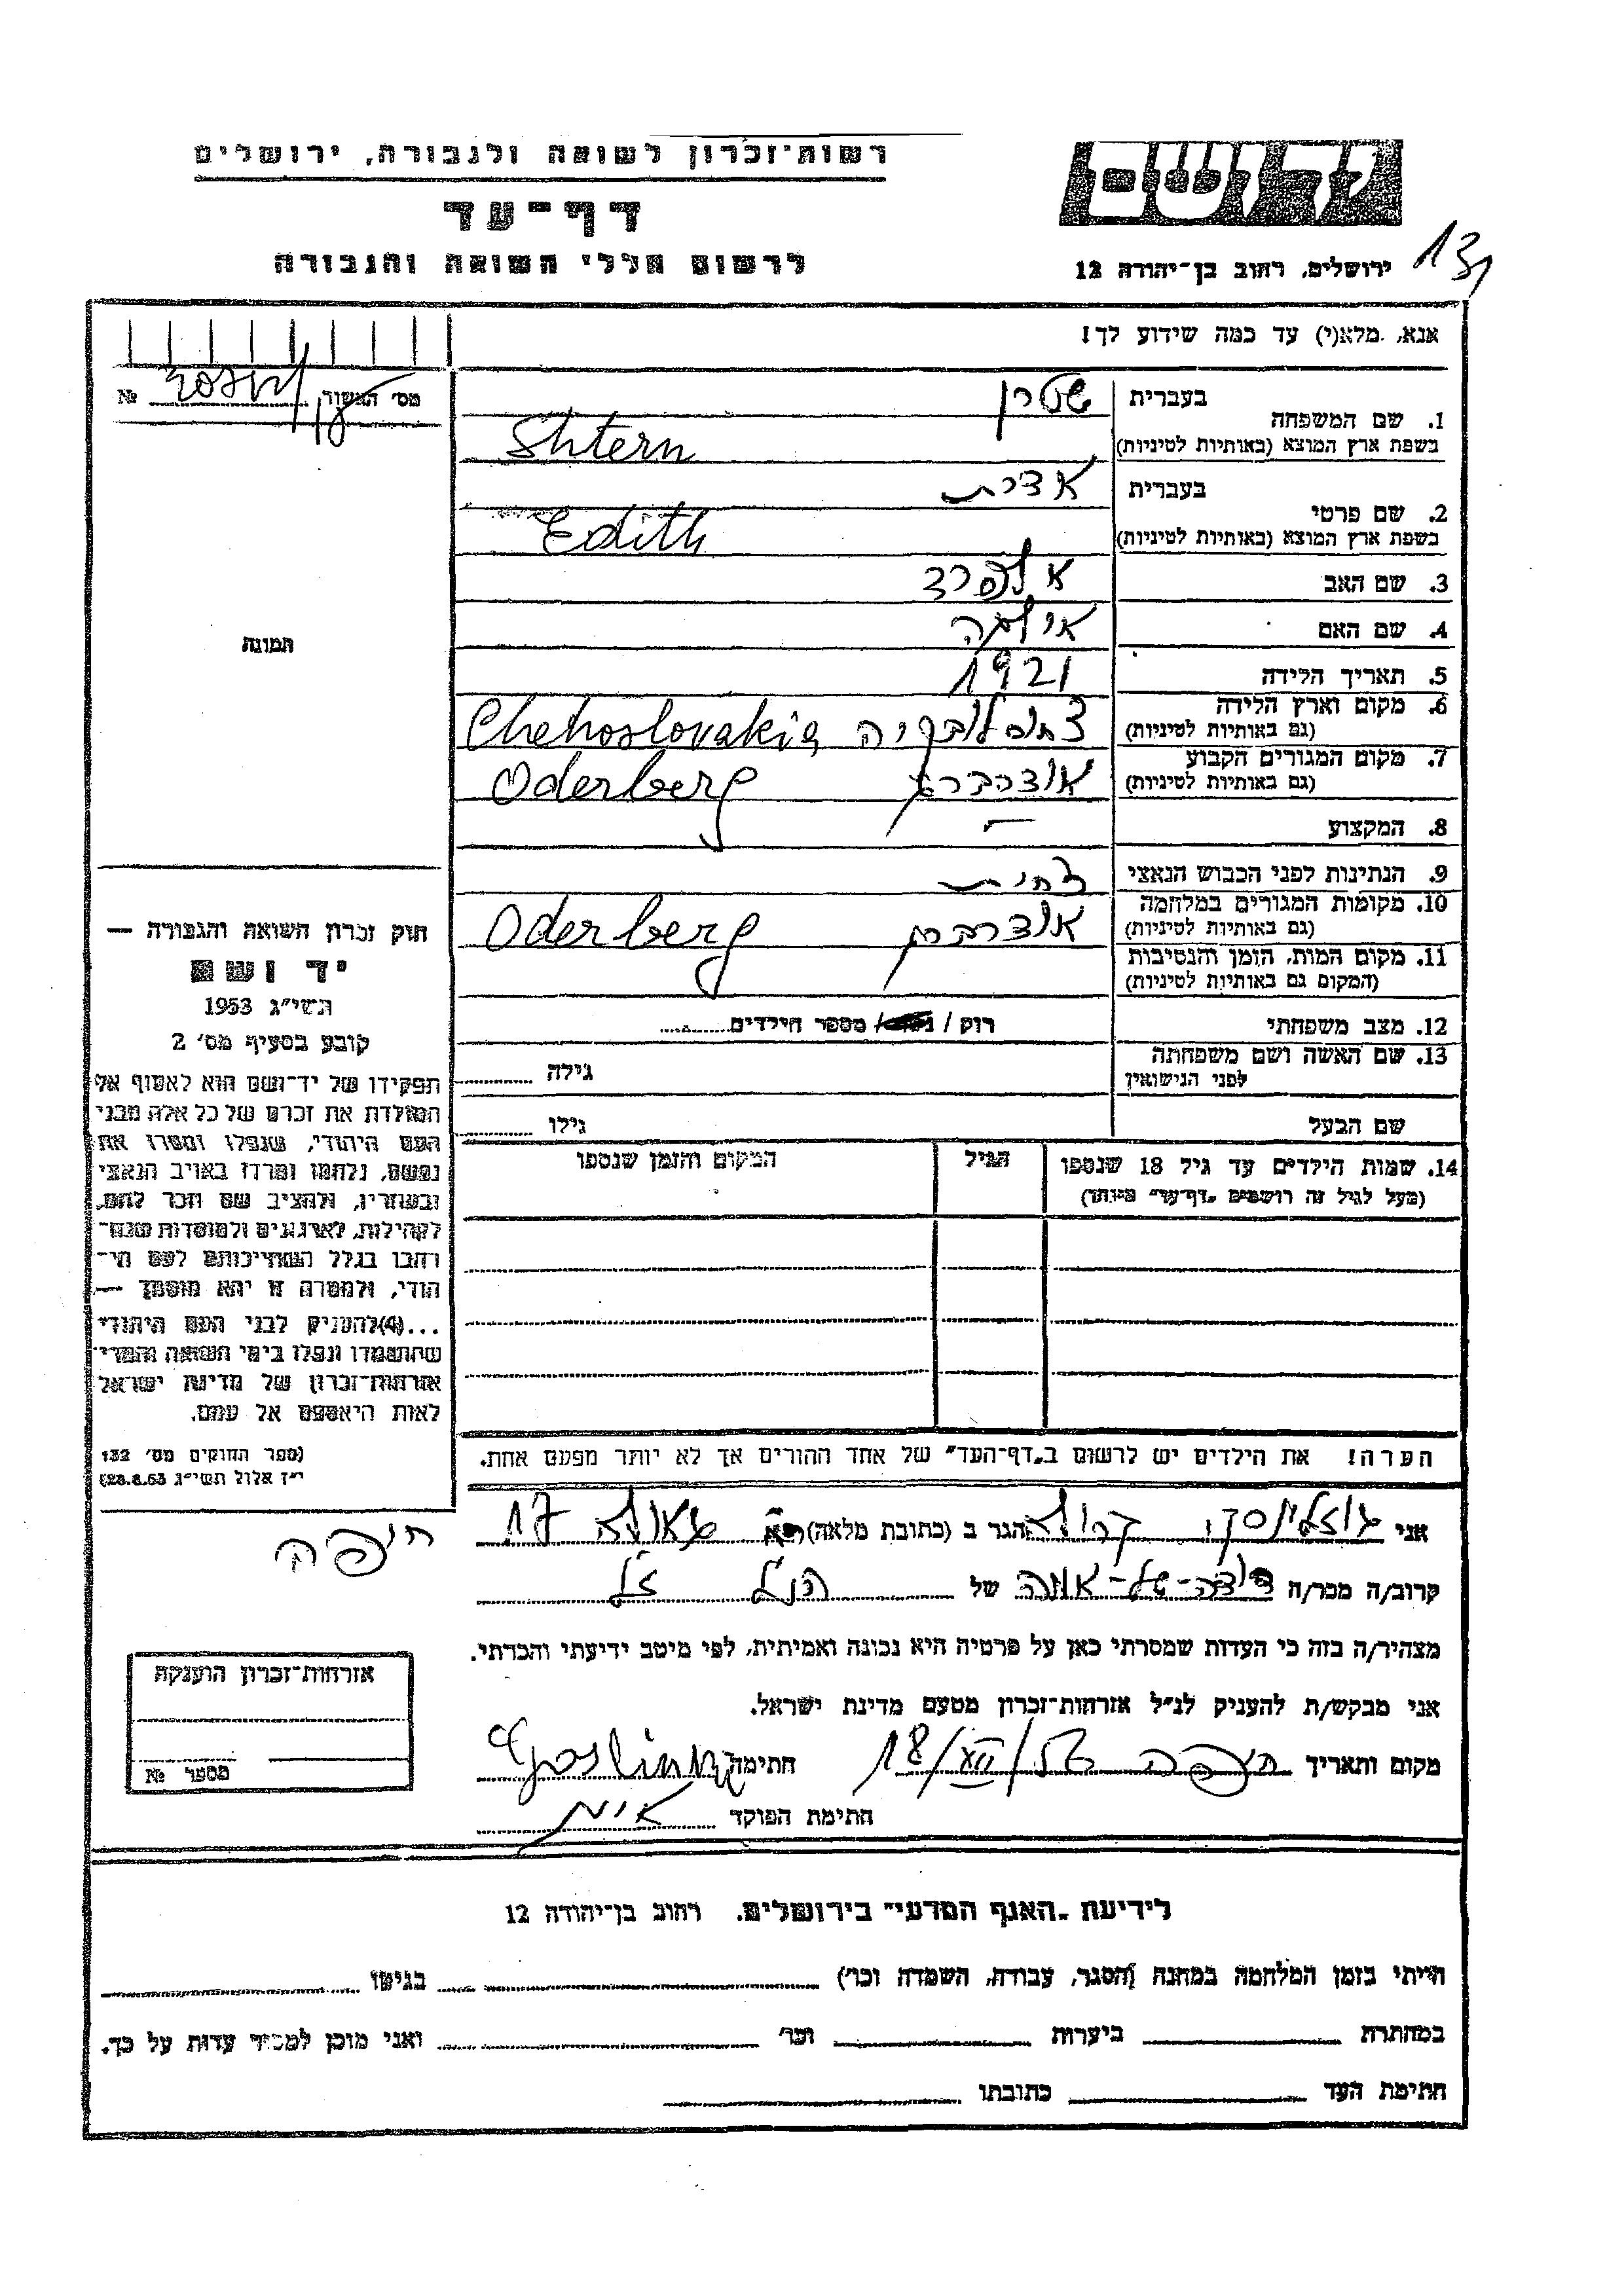 רשות־זכרון לשואה ולגבורה, ירושלים
דף־עד
לרשום חללי השואה והגבורה
יד ושם
ירושלים, רחוב בן־יהודה 12
אנא, מלא(י) עד כמה שידוע לך!
מס׳ האשור №
1. שם המשפחה
בעברית שטרן
בשפת ארץ המוצא (באותיות לטיניות) Shtern
2. שם פרטי
בעברית אדית
בשפת ארץ המוצא (באותיות לטיניות) Edith
3. שם האב אלפרד
4. שם האם
5. תאריך הלידה 1921
6. מקום וארץ הלידה
(גם באותיות לטיניות) Chehoslovakia
7. מקום המגורים הקבוע
(גם באותיות לטיניות) אודרברג Oderberg
8. המקצוע —
9. הנתינות לפני הכבוש הנאצי
10. מקומות המגורים במלחמה
(גם באותיות לטיניות) אודרברג Oderberg
11. מקום המות, הזמן והנסיבות
(המקום גם באותיות לטיניות)
12. מצב משפחתי רוק / מספר הילדים
13. שם האשה ושם משפחתה
לפני הנישואין גילה
שם הבעל גילו
14. שמות הילדים עד גיל 18 שנספו
(מעל לגיל זה רושמים „דף־עד״ מיוחד)
הגיל
המקום והזמן שנספו
תמונה
חוק זכרון השואה והגבורה —
יד ושם
תשי״ג 1953
קובע בסעיף מס׳ 2
תפקידו של יד־ושם הוא לאסוף אל
המולדת את זכרם של כל אלה מבני
העם היהודי, שנפלו ומסרו את
נפשם, נלחמו ומרדו באויב הנאצי
ובעוזריו, ולהציב שם וזכר להם,
לקהילות, לארגונים ולמוסדות שנח־
רבו בגלל השתייכותם לעם הי־
הודי, ולמטרה זו יהא מוסמך —
...(4)להעניק לבני העם היהודי
שהושמדו ונפלו בימי השואה והמרי
אזרחות־זכרון של מדינת ישראל
לאות היאספם אל עמם.
(ספר החוקים מס׳ 132
י״ז אלול תשי״ג 28.8.53)
הערה! את הילדים יש לרשום ב„דף־העד״ של אחד ההורים אך לא יותר מפעם אחת.
אני הגר ב (כתובת מלאה) 17
חיפה
קרוב/ה מכר/ה של הנ״ל ז״ל
מצהיר/ה בזה כי העדות שמסרתי כאן על פרטיה היא נכונה ואמיתית, לפי מיטב ידיעתי והכרתי.
אני מבקש/ת להעניק לנ״ל אזרחות־זכרון מטעם מדינת ישראל.
מקום ותאריך חיפה חתימה
חתימת הפוקד
אזרחות־זכרון הוענקה
מספר №
לידיעת „האגף המדעי״ בירושלים. רחוב בן־יהודה 12
הייתי בזמן המלחמה במחנה (הסגר, עבודה, השמדה וכו׳) בגיטו
במחתרת ביערות וכו׳ ואני מוכן למסור עדות על כך.
חתימת העד כתובתו